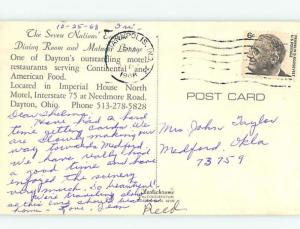 10-25-68 Fri.
The Seven Nations
Dining Room and
One of Dayton's outstanding motel
restaurants serving Continental and
American Food.
Located in Imperial House North
Motel, Interstate 75 at Needmore Road,
Dayton, Ohio Phone 513-278-5828
6c
POST CARD
Dear Shelong:
Have had a hard
time getting cards. We
are slowly making our
way towards Medford.
We have really had
a good time and have
enjoyed the scenery
very much. So beautiful.
We're traveling slow
home. Love, Jean
Reed
Mrs John Taylor
Medford, Okla
73759